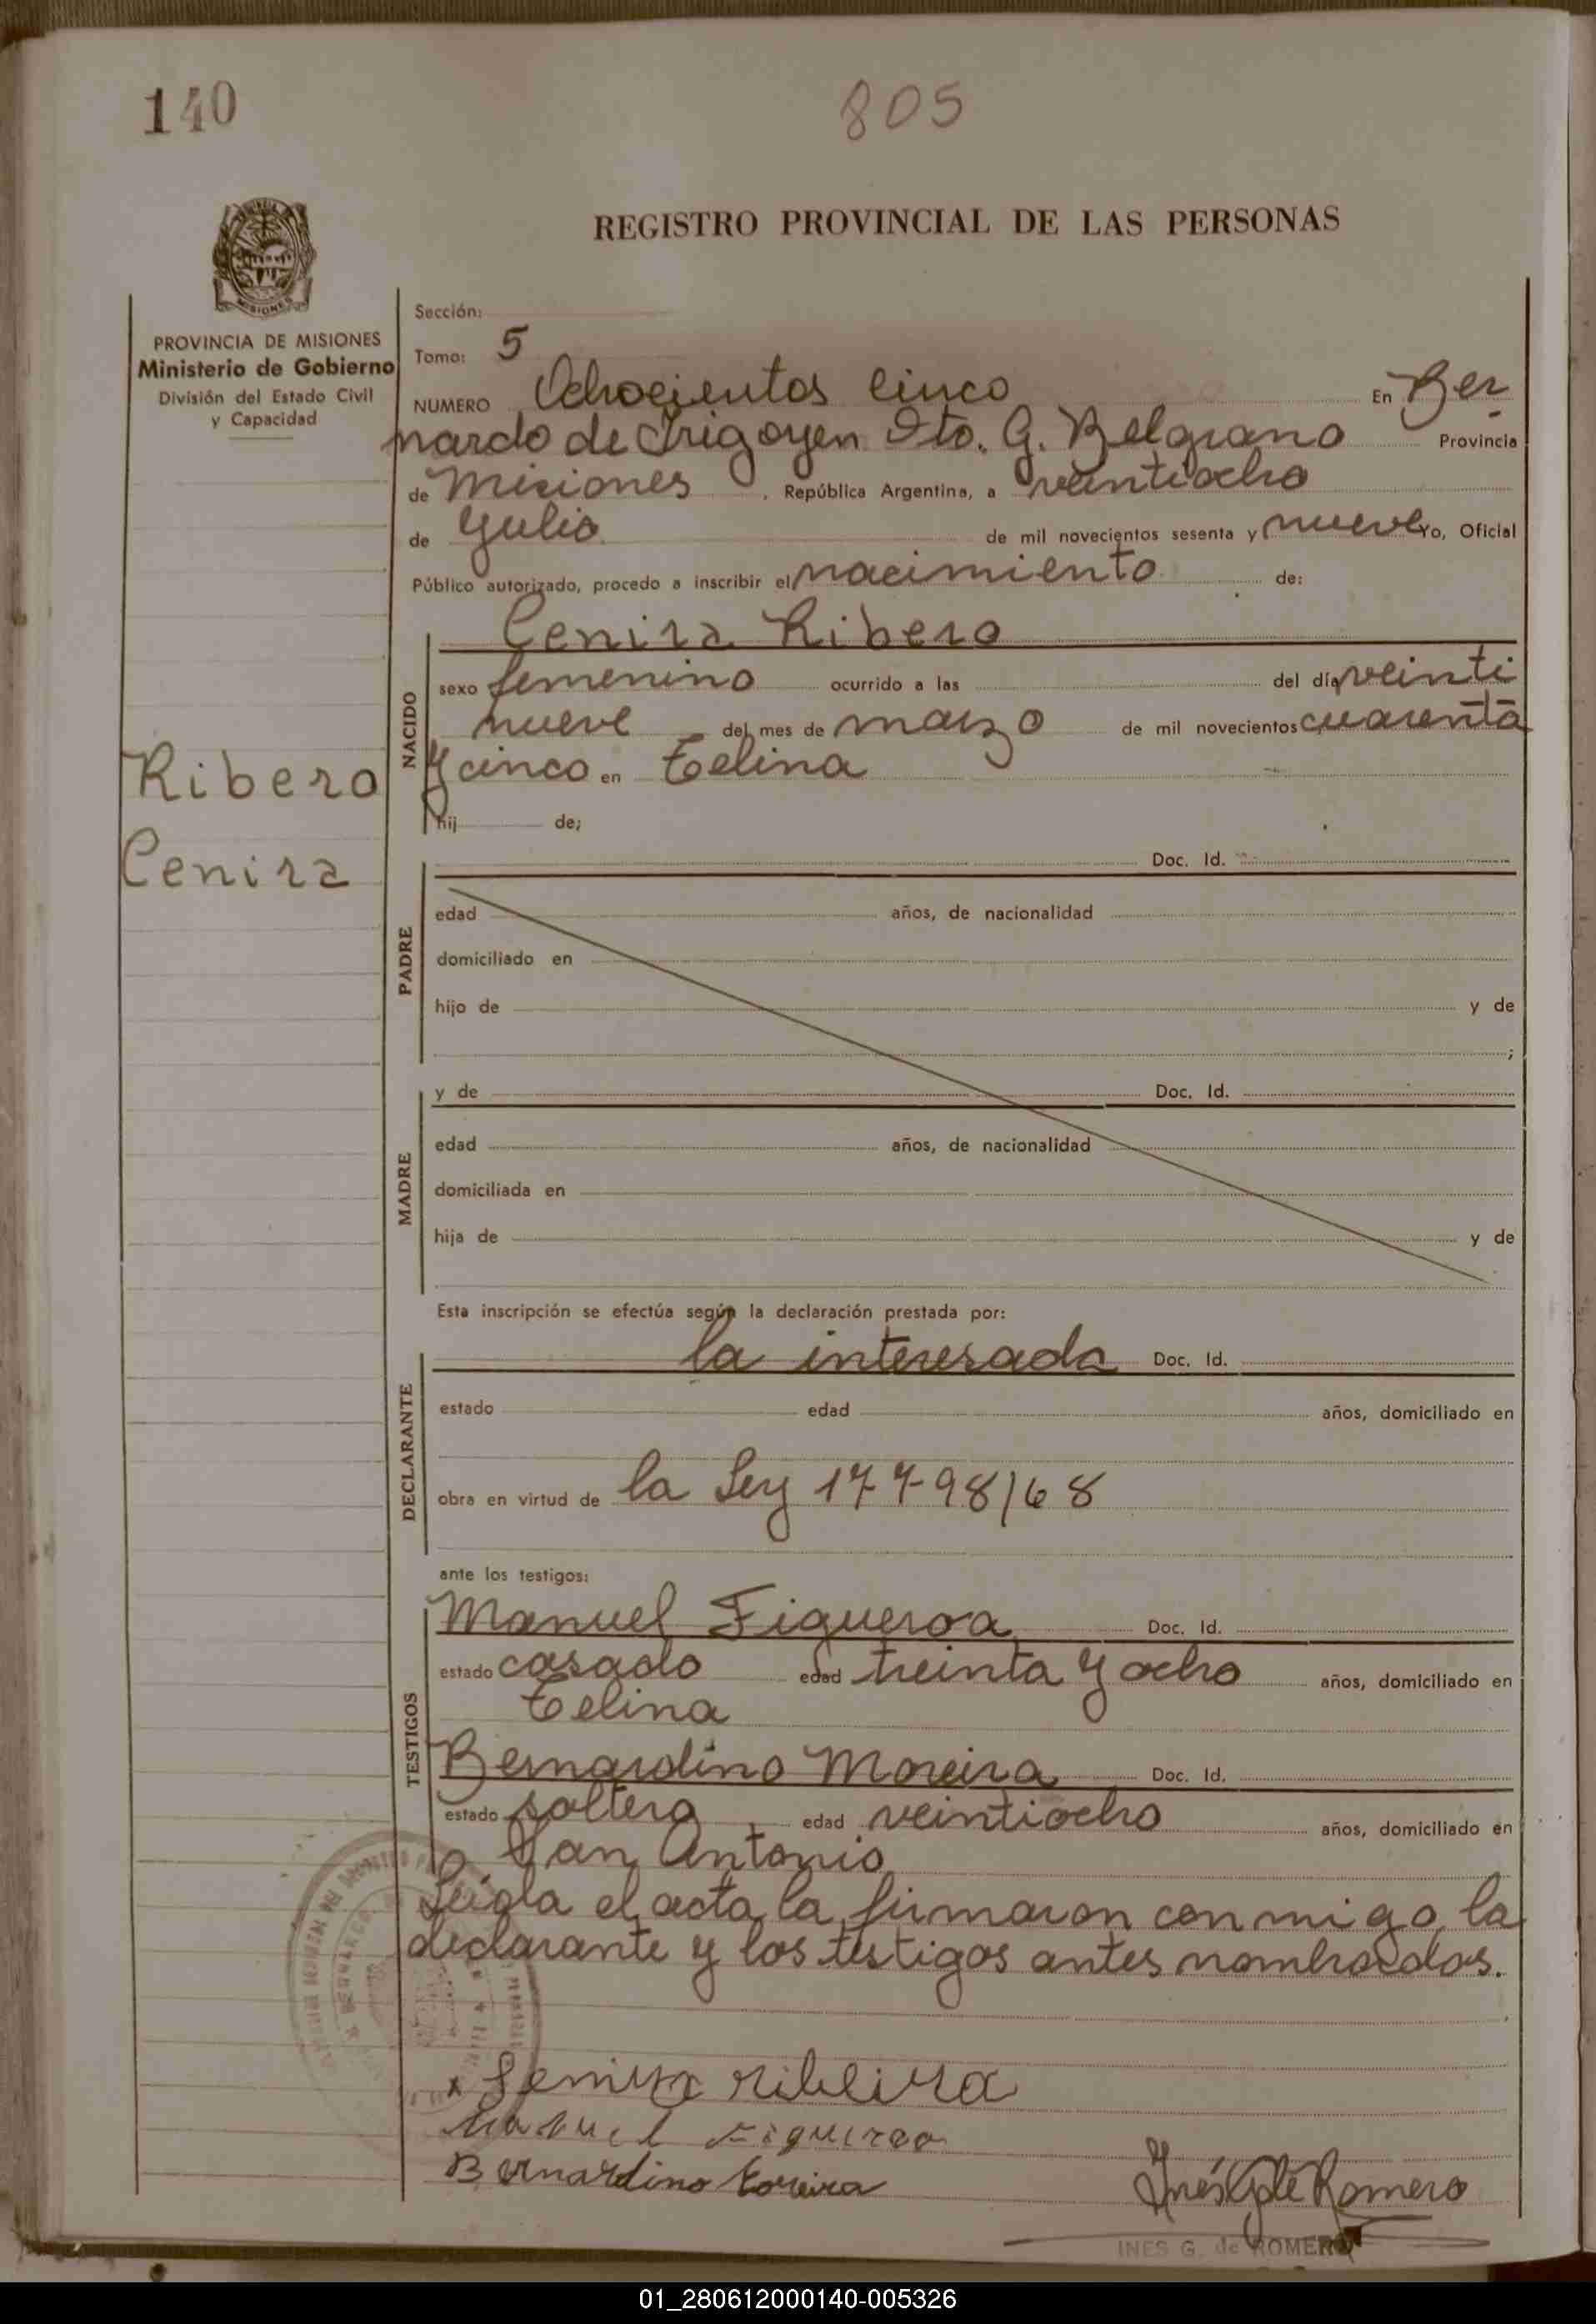 140
805
REGISTRO PROVINCIAL DE LAS PERSONAS
MISIONES
PROVINCIA DE MISIONES
Ministerio de Gobierno
División del Estado Civil
y Capacidad
Sección:
Tomo: 5
NUMERO Ochocientos cinco En Ber
nardo de Irigoyen Dto. G. Belgrano Provincia
de Misiones, República Argentina, a veintiocho
de Julio de mil novecientos sesenta y nueve Yo, Oficial
Público autorizado, procedo a inscribir el nacimiento de:
NACIDO
Cenira Ribero
sexo femenino ocurrido a las del día veinti
nueve del mes de marzo de mil novecientos cuarenta
y cinco en Celina
hij de;
Ribero
Cenira
PADRE
Doc. Id.
edad años, de nacionalidad
domiciliado en
hijo de y de
;
MADRE
y de Doc. Id.
edad años, de nacionalidad
domiciliada en
hija de y de
Esta inscripción se efectúa según la declaración prestada por:
DECLARANTE
la interesada Doc. Id.
estado edad años, domiciliado en
obra en virtud de la Ley 17798/68
ante los testigos:
TESTIGOS
Manuel Figueroa Doc. Id.
estado casado edad treinta y ocho años, domiciliado en
Celina
Bernardino Moreira Doc. Id.
estado soltero edad veintiocho años, domiciliado en
San Antonio
Leída el acta la firmaron conmigo la
declarante y los testigos antes nombrados.
x Senira ribeira
Manuel Figueroa
Bernardino Moreira
Inés G de Romero
INES G. de ROMERO
01_280612000140-005326